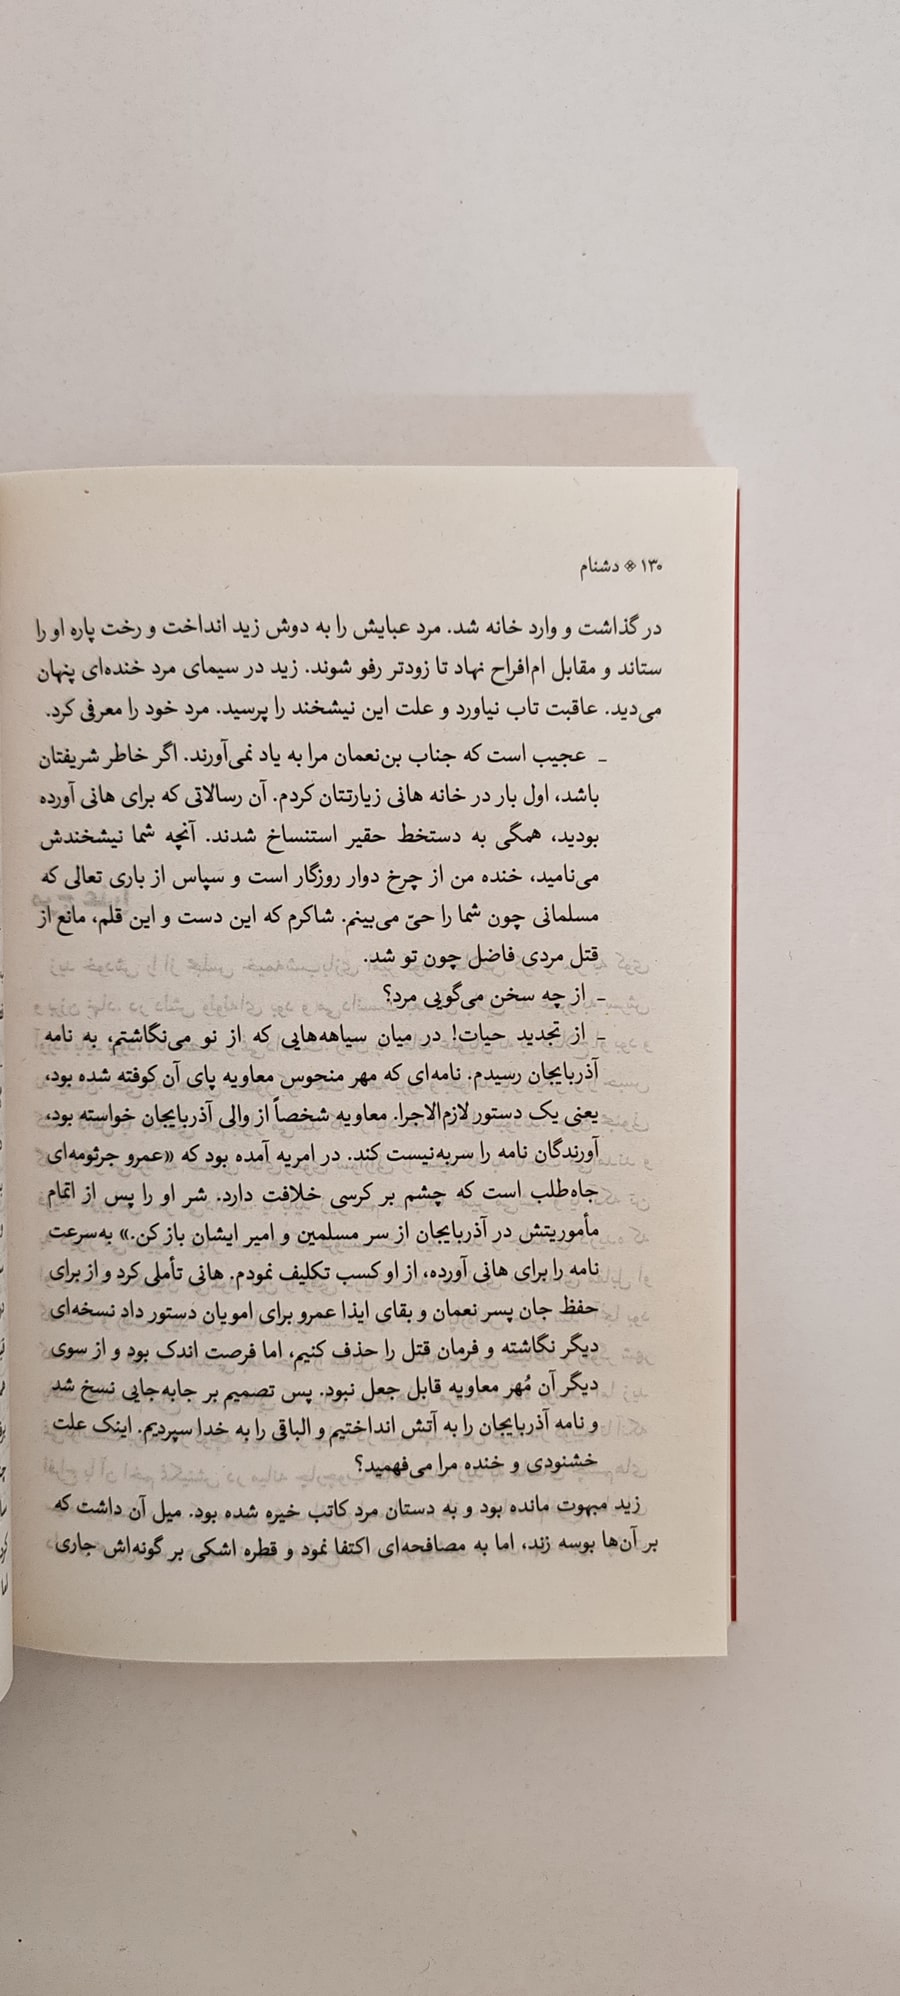 ۱۳۰ ※ دشنام
در گذاشت و وارد خانه شد. مرد عبایش را به دوش زید انداخت و رخت پاره او را
ستاند و مقابل ام‌افراح نهاد تا زودتر رفو شوند. زید در سیمای مرد خنده‌ای پنهان
می‌دید. عاقبت تاب نیاورد و علت این نیشخند را پرسید. مرد خود را معرفی کرد.
ـ عجیب است که جناب بن‌نعمان مرا به یاد نمی‌آورند. اگر خاطر شریفتان
باشد، اول بار در خانه هانی زیارتتان کردم. آن رسالاتی که برای هانی آورده
بودید، همگی به دستخط حقیر استنساخ شدند. آنچه شما نیشخندش
می‌نامید، خنده من از چرخ دوار روزگار است و سپاس از باری تعالی که
مسلمانی چون شما را حیّ می‌بینم. شاکرم که این دست و این قلم، مانع از
قتل مردی فاضل چون تو شد.
ـ از چه سخن می‌گویی مرد؟
ـ از تجدید حیات! در میان سیاهه‌هایی که از نو می‌نگاشتم، به نامه
آذربایجان رسیدم. نامه‌ای که مهر منحوس معاویه پای آن کوفته شده بود،
یعنی یک دستور لازم‌الاجرا. معاویه شخصاً از والی آذربایجان خواسته بود،
آورندگان نامه را سربه‌نیست کند. در امریه آمده بود که «عمرو جرثومه‌ای
جاه‌طلب است که چشم بر کرسی خلافت دارد. شر او را پس از اتمام
مأموریتش در آذربایجان از سر مسلمین و امیر ایشان باز کن.» به‌سرعت
نامه را برای هانی آورده، از او کسب تکلیف نمودم. هانی تأملی کرد و از برای
حفظ جان پسر نعمان و بقای ایذا عمرو برای امویان دستور داد نسخه‌ای
دیگر نگاشته و فرمان قتل را حذف کنیم، اما فرصت اندک بود و از سوی
دیگر آن مُهر معاویه قابل جعل نبود. پس تصمیم بر جابه‌جایی نسخ شد
و نامه آذربایجان را به آتش انداختیم و الباقی را به خدا سپردیم. اینک علت
خشنودی و خنده مرا می‌فهمید؟
زید مبهوت مانده بود و به دستان مرد کاتب خیره شده بود. میل آن داشت که
بر آن‌ها بوسه زند، اما به مصافحه‌ای اکتفا نمود و قطره اشکی بر گونه‌اش جاری